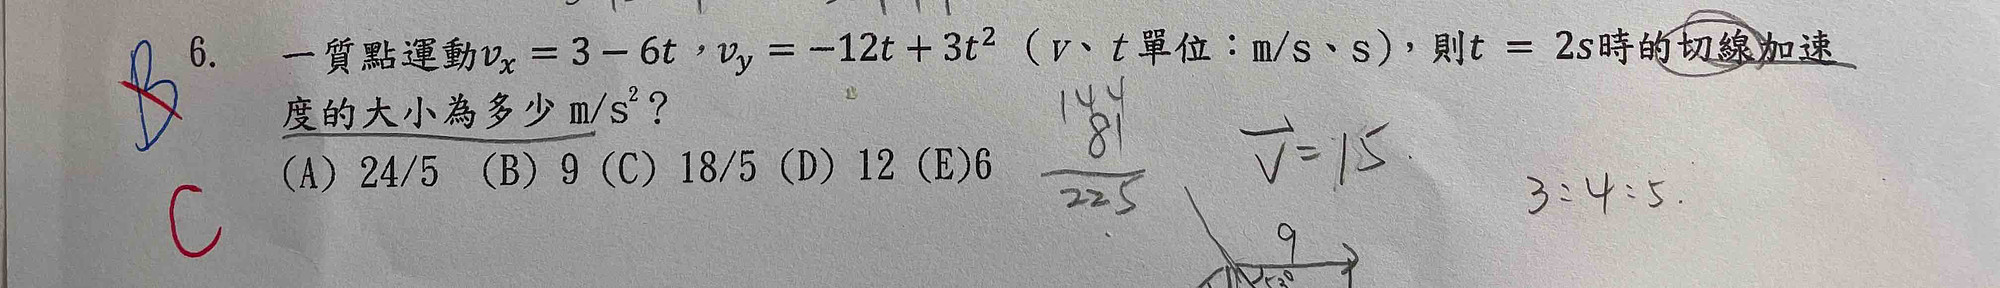 B
6. 一質點運動vₓ = 3 − 6t，v_y = −12t + 3t²（v、t單位：m/s、s），則t = 2s時的切線加速
度的大小為多少 m/s²？
(A) 24/5 (B) 9 (C) 18/5 (D) 12 (E)6
C
144
81
225
v⃗ = 15.
3:4:5.
9
53°